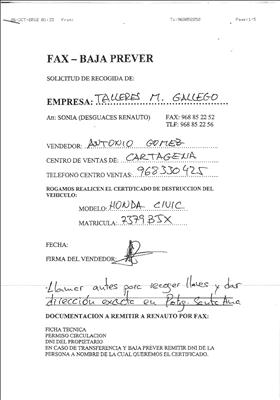 FAX – BAJA PREVER
SOLICITUD DE RECOGIDA DE:
EMPRESA: TALLERES M. GALLEGO
Att: SONIA (DESGUACES RENAUTO) FAX: 968 85 22 52
TLF: 968 85 22 56
VENDEDOR: ANTONIO GOMEZ
CENTRO DE VENTAS DE: CARTAGENA
TELEFONO CENTRO VENTAS: 968330425
ROGAMOS REALICEN EL CERTIFICADO DE DESTRUCCION DEL
VEHICULO:
MODELO: HONDA CIVIC
MATRICULA: 7379BJX
FECHA:
FIRMA DEL VENDEDOR:
Llamar antes para recoger llaves y dar
dirección exacta en Polig. Santa Ana
DOCUMENTACION A REMITIR A RENAUTO POR FAX:
FICHA TECNICA
PERMISO CIRCULACION
DNI DEL PROPIETARIO
EN CASO DE TRANSFERENCIA Y BAJA PREVER REMITIR DNI DE LA
PERSONA A NOMBRE DE LA CUAL QUEREMOS EL CERTIFICADO.